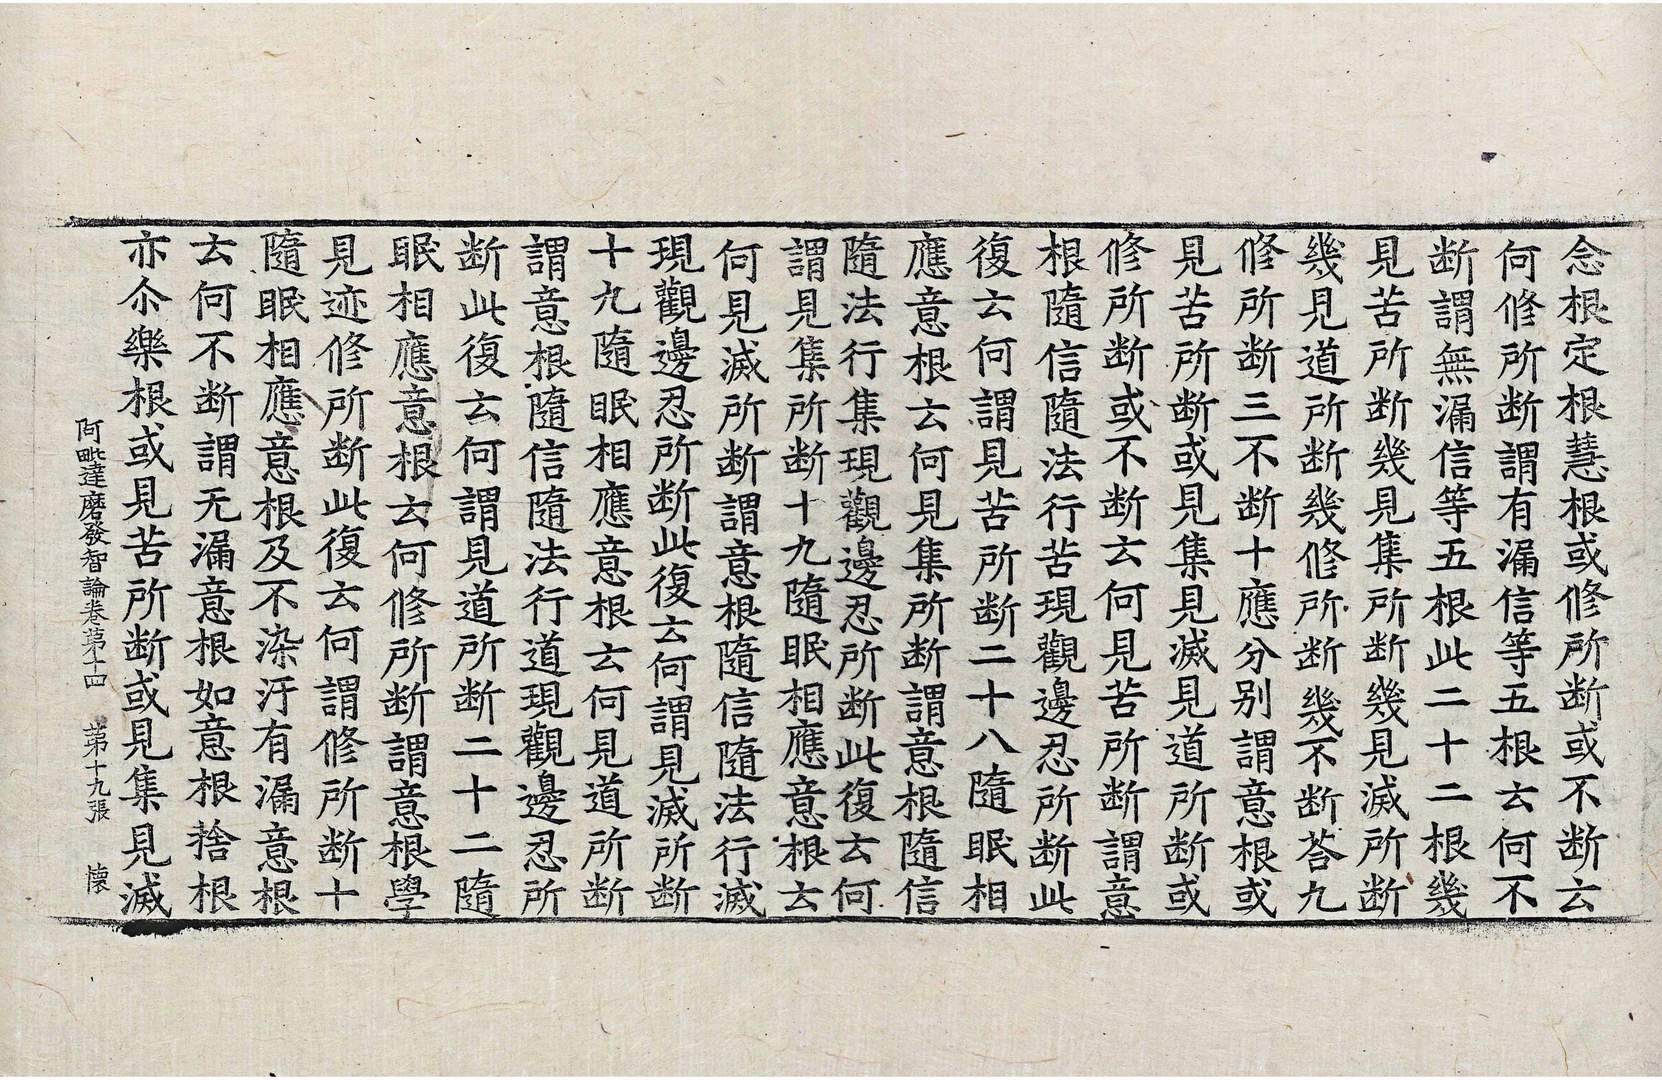 念根定根慧根或修所断或不断云
何修所断謂有漏信等五根云何不
断謂無漏信等五根此二十二根幾
見苦所断幾見集所断幾見滅所断
幾見道所断幾修所断幾不断荅九
修所断三不断十應分別謂意根或
見苦所断或見集見滅見道所断或
修所断或不断云何見苦所断謂意
根隨信隨法行苦現觀邊忍所断此
復云何謂見苦所断二十八隨眠相
應意根云何見集所断謂意根隨信
隨法行集現觀邊忍所断此復云何
謂見集所断十九隨眠相應意根云
何見滅所断謂意根隨信隨法行滅
現觀邊忍所断此復云何謂見滅所断
十九隨眠相應意根云何見道所断
謂意根隨信隨法行道現觀邊忍所
断此復云何謂見道所断二十二隨
眠相應意根云何修所断謂意根學
見迹修所断此復云何謂修所断十
隨眠相應意根及不染汙有漏意根
云何不断謂无漏意根如意根捨根
亦尒樂根或見苦所断或見集見滅
阿毗達磨發智論卷第十四　第十九張　懷